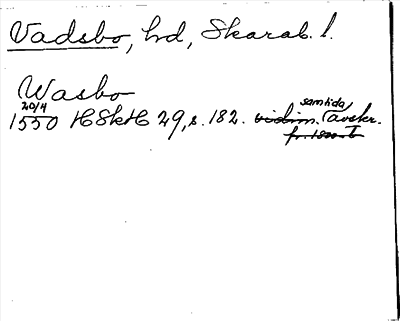 Vadsbo, hd, Skarab. l.
Wasbo
20/4 samtida
1550 HSkH 29, s. 182. vidim. avskr.
fr. 1500-t